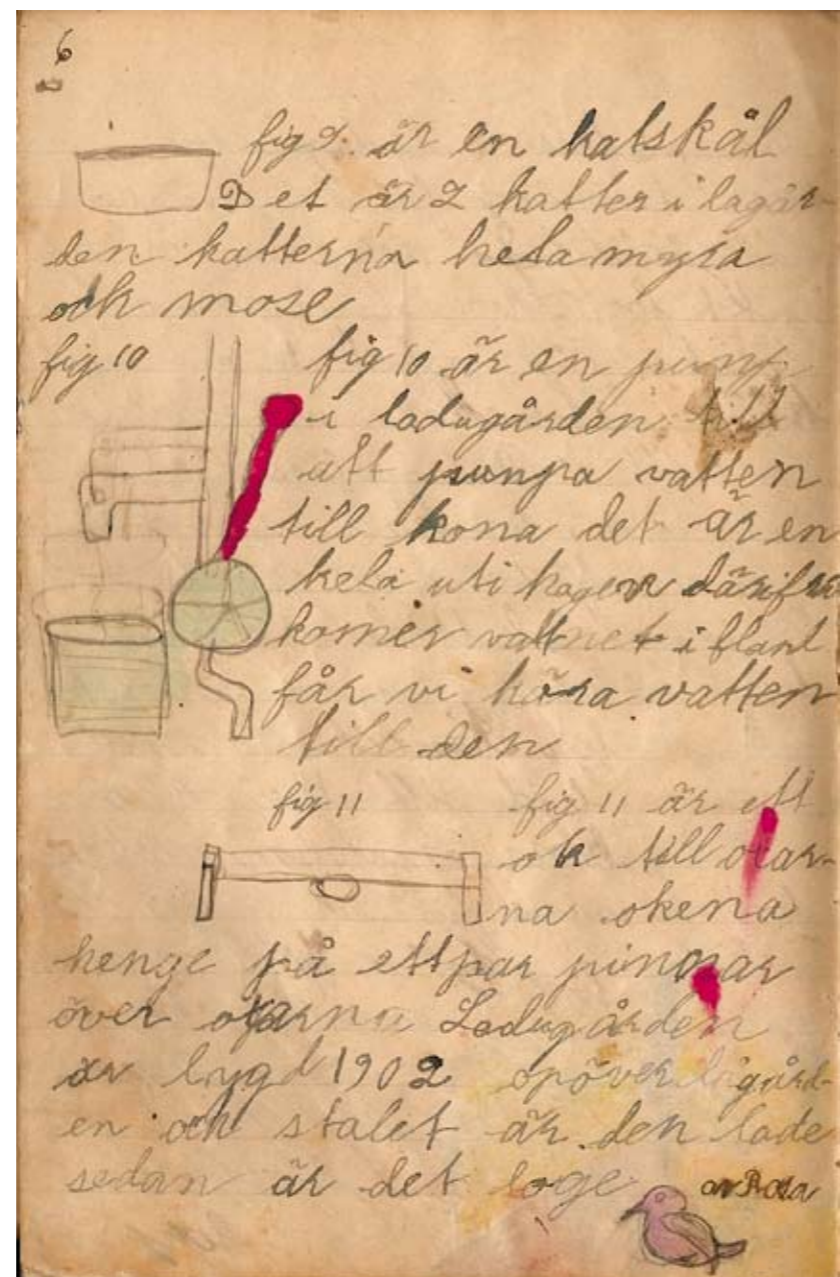 6
fig 9. är en katskål
Det är 2 katter i lagår-
den katterna heta myra
och mose
fig 10
fig 10 är en pump
i ladugården till
att punpa vatten
till kona det är en
kela uti hagen därifrå
komer vattnet i bland
får vi köra vatten
till den
fig 11
fig 11 är ett
ok till oxar-
na okena
henge på ett par pinnar
över oxarna Ladugården
är bygd 1902 opöver lagård-
en och stalet är den lade
sedan är det loge
av